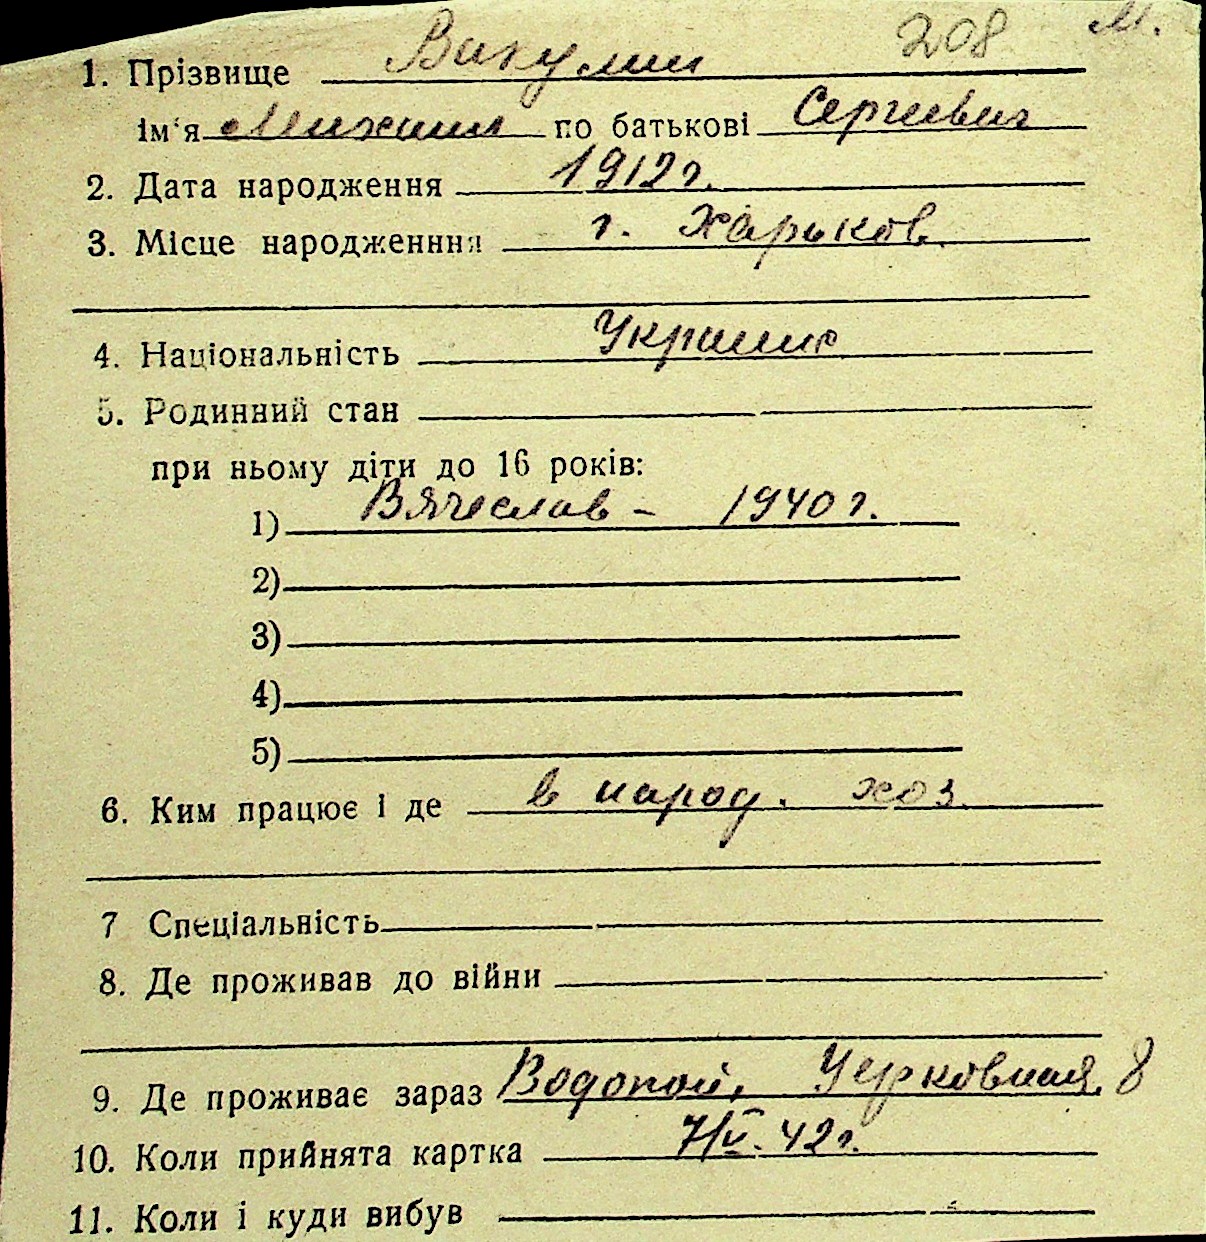 208 М.
1. Прізвище Вакулин
ім'я Михаил по батькові Сергиевич
2. Дата народження 1912 г.
3. Місце народженння г. Харьков.
4. Національність Украинец
5. Родинний стан
при ньому діти до 16 років:
1) Вячеслав – 1940 г.
2)
3)
4)
5)
6. Ким працює і де в народ. хоз.
7 Спеціальність
8. Де проживав до війни
9. Де проживає зараз Водопой, Церковная, 8
10. Коли прийнята картка 7/V. 42 г.
11. Коли і куди вибув